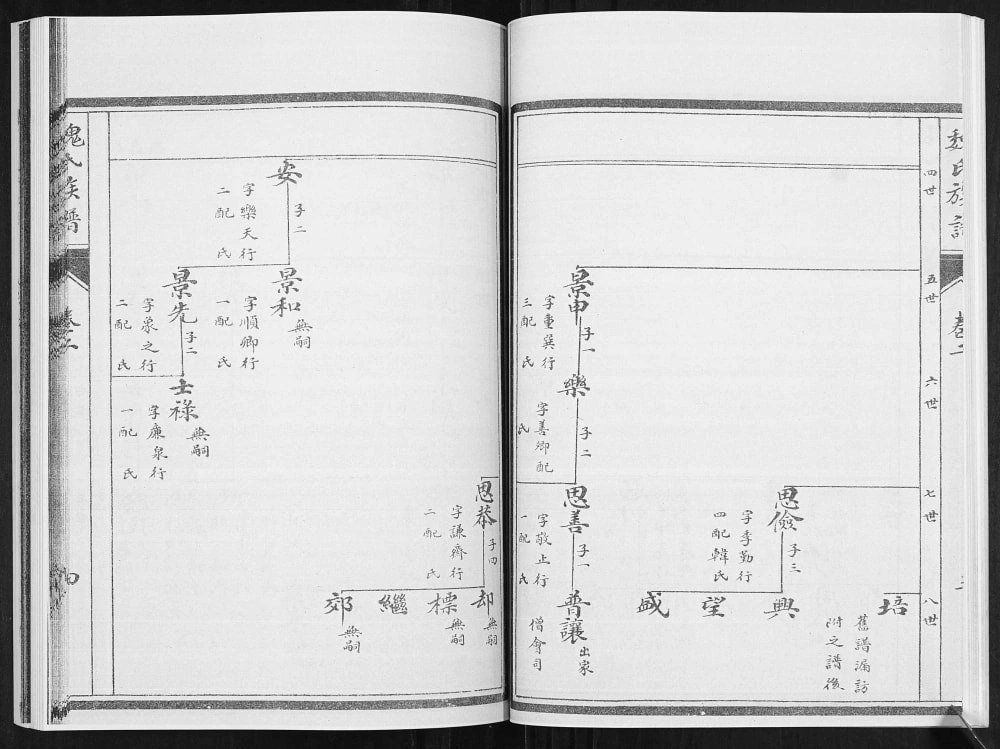 魏氏族譜
卷二
四世
五世
六世
七世
八世
培
舊譜漏訪
附之譜後
思儉
子三
字季勤行
四配韓氏
興
望
盛
景申
子一
字重巽行
三配氏
樂
子二
字善卿配
氏
思善
子一
字敬止行
一配氏
普讓
出家
僧會司
思恭
子四
字謙齊行
二配氏
却
無嗣
標
無嗣
繼
郊
無嗣
安
子二
字樂天行
二配氏
景和
無嗣
字順卿行
一配氏
景先
子二
字象之行
二配氏
士祿
無嗣
字廉泉行
一配氏
魏氏族譜
卷二